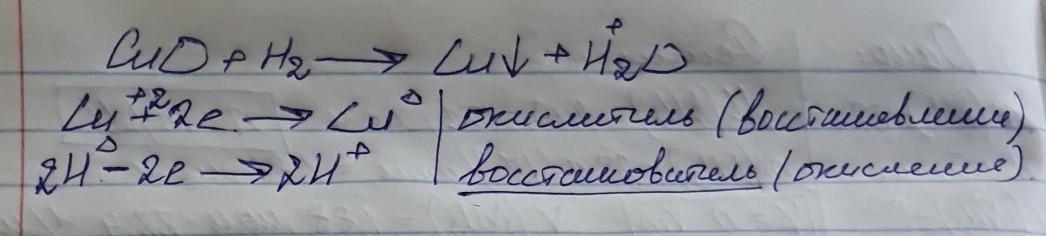 CuO + H₂ ⟶ Cu↓ + H⁺₂O
Cu⁺² + 2e ⟶ Cu⁰ | окислитель (восстановление)
2H⁰ - 2e ⟶ 2H⁺ | восстановитель (окисление)